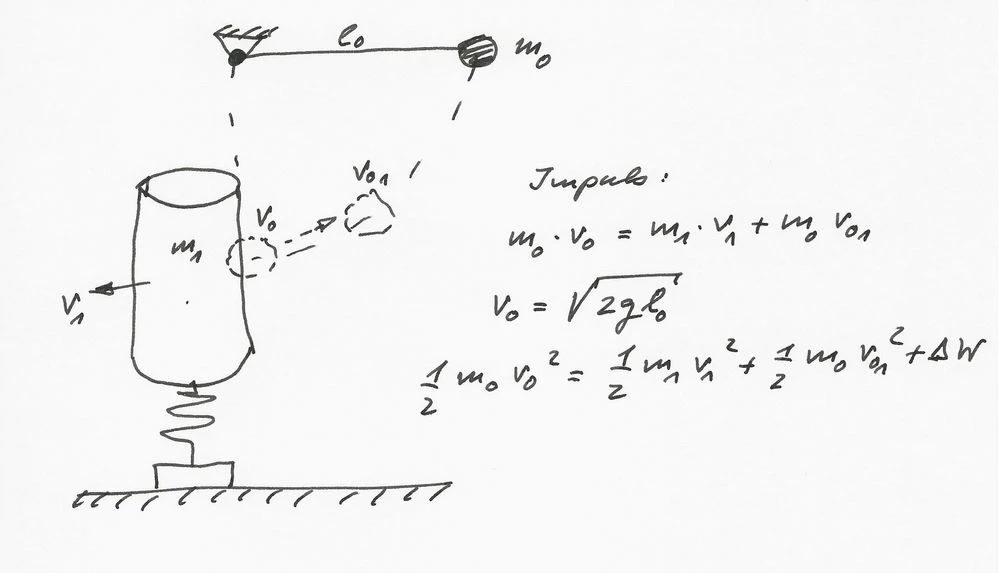 l₀
m₀
v₀₁
v₀
m₁
v₁
Impuls:
m₀ · v₀ = m₁ · v₁ + m₀ v₀₁
v₀ = √(2gl₀)
1/2 m₀ v₀² = 1/2 m₁ v₁² + 1/2 m₀ v₀₁² + ΔW